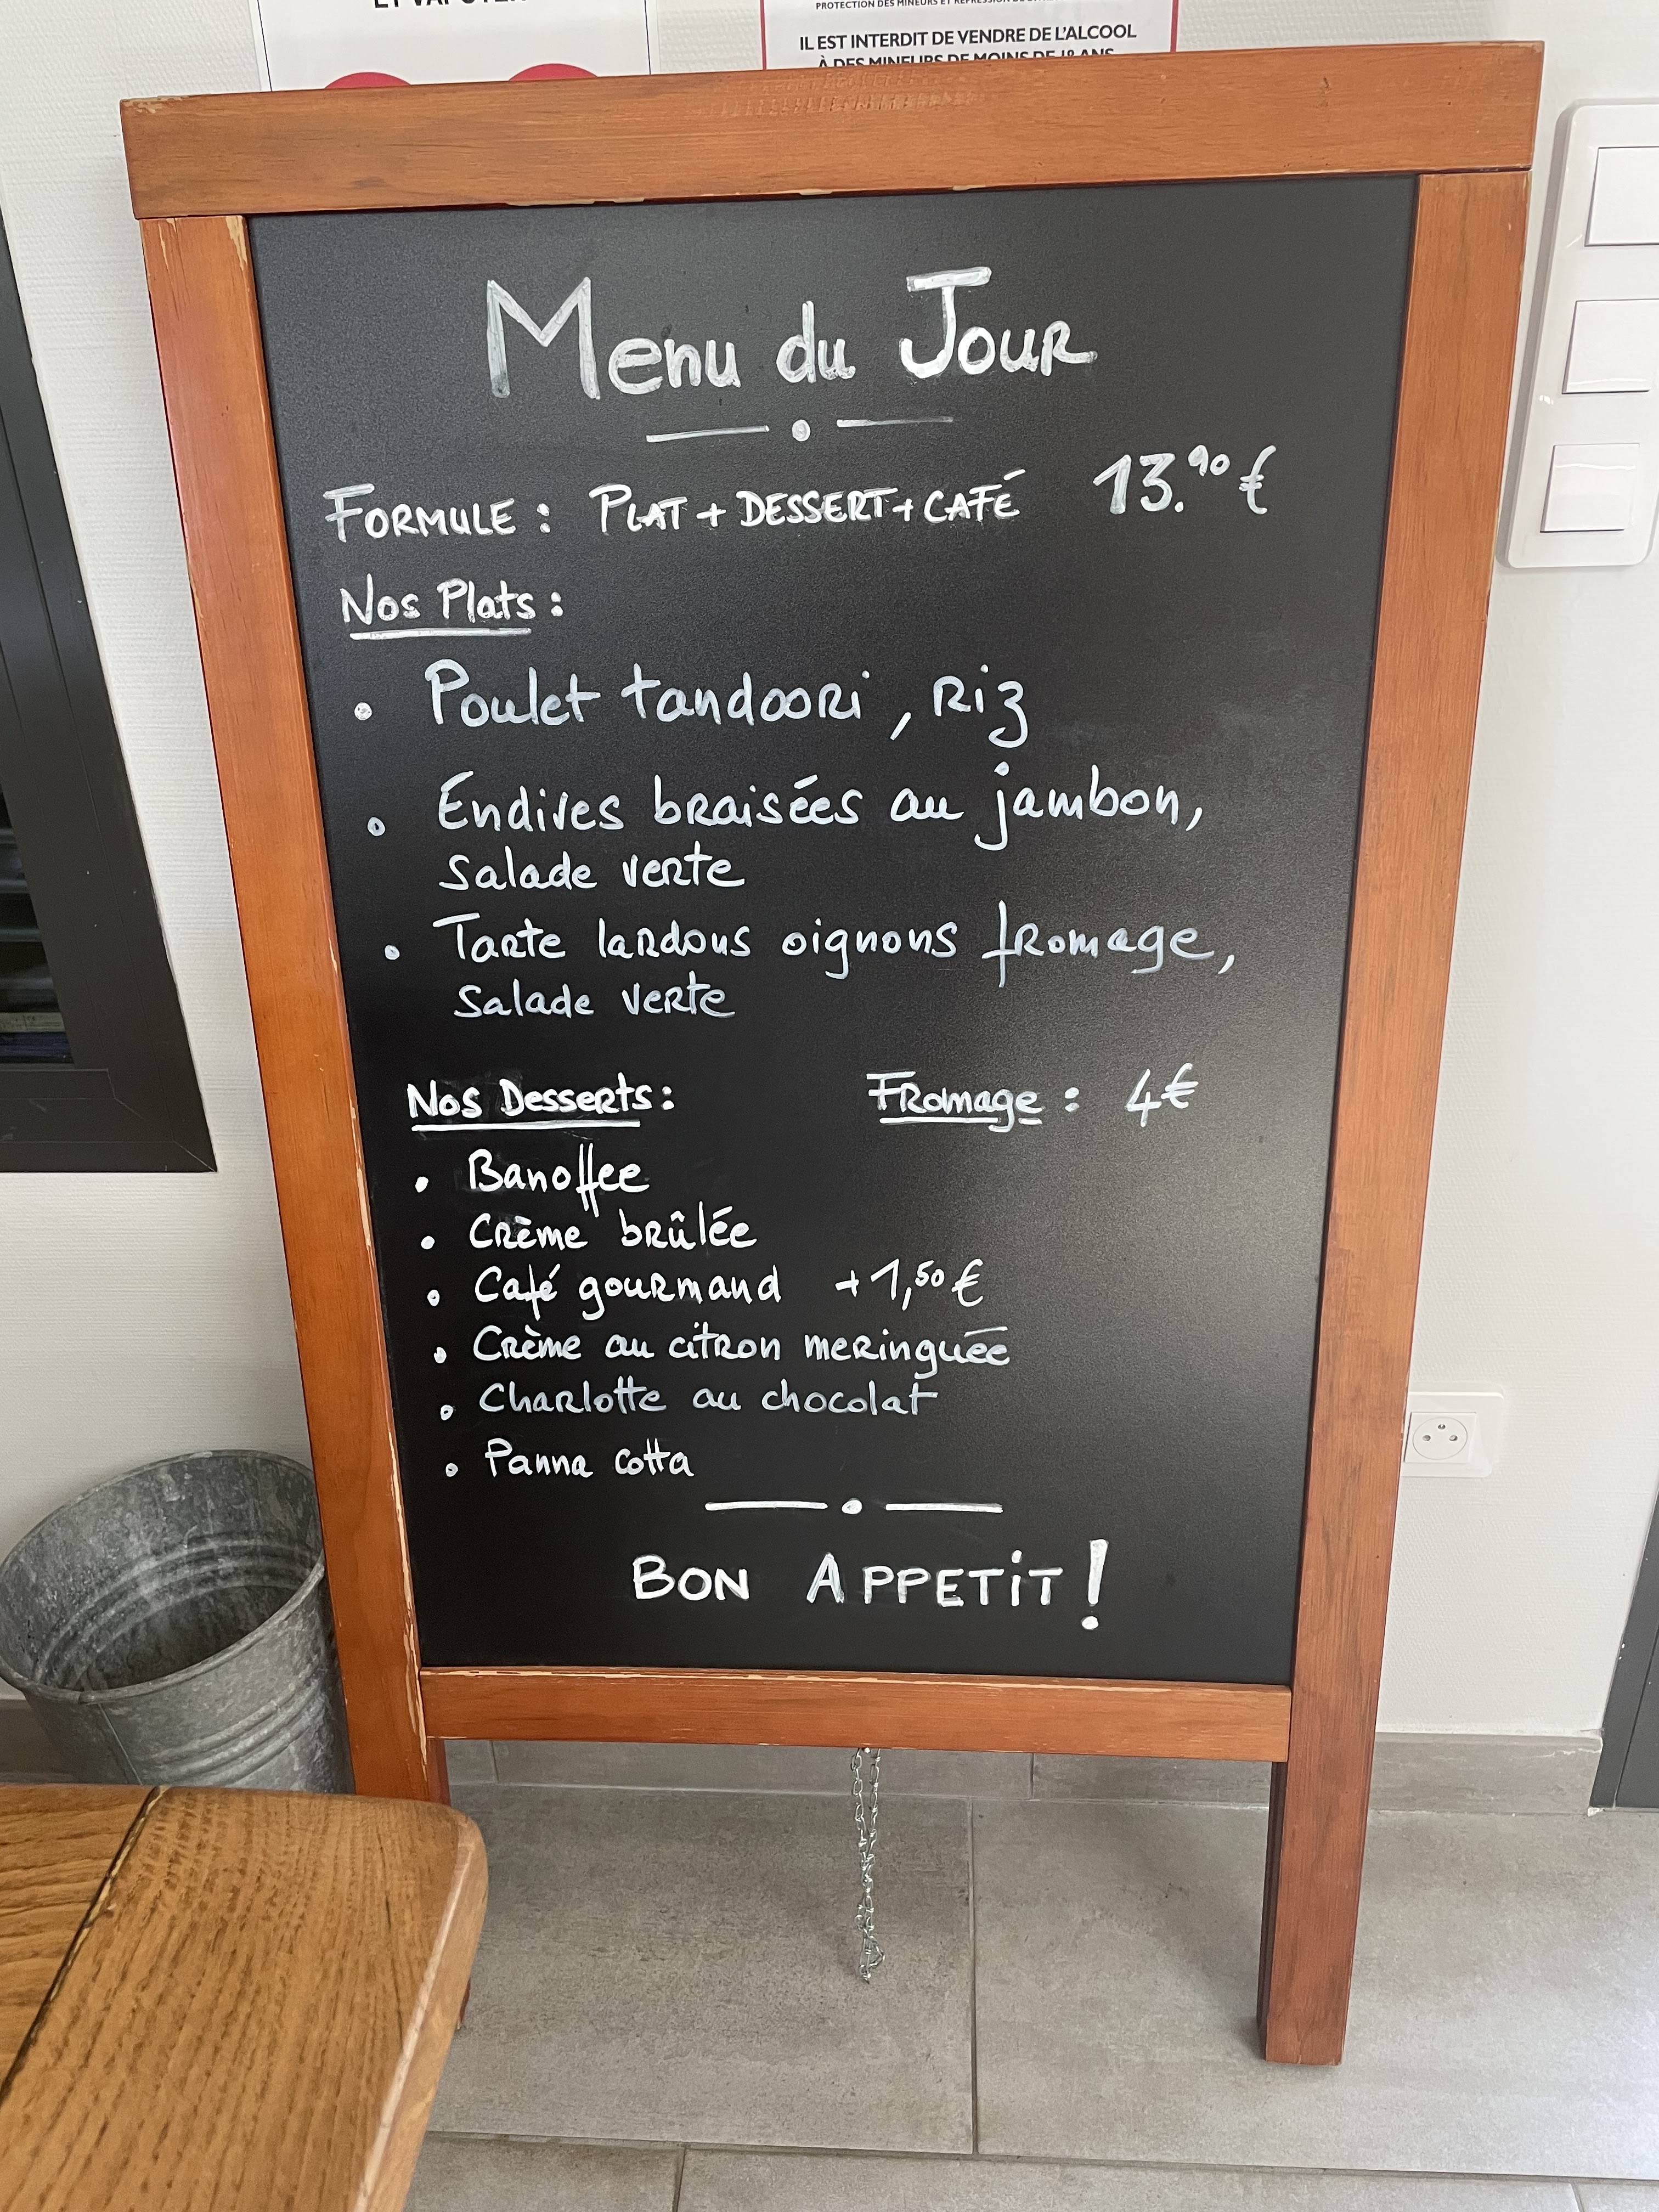 ET VAPOTER
PROTECTION DES MINEURS ET RÉPRESSION
IL EST INTERDIT DE VENDRE DE L'ALCOOL
À DES MINEURS DE MOINS DE 18 ANS
Menu du Jour
Formule : Plat + Dessert + Café 13.90 €
Nos Plats :
• Poulet tandoori, Riz
• Endives braisées au jambon,
Salade verte
• Tarte lardons oignons fromage,
Salade verte
Nos Desserts : Fromage : 4€
• Banoffee
• Crème brûlée
• Café gourmand +1,50 €
• Crème au citron meringuée
• Charlotte au chocolat
• Panna cotta
BON APPETiT !